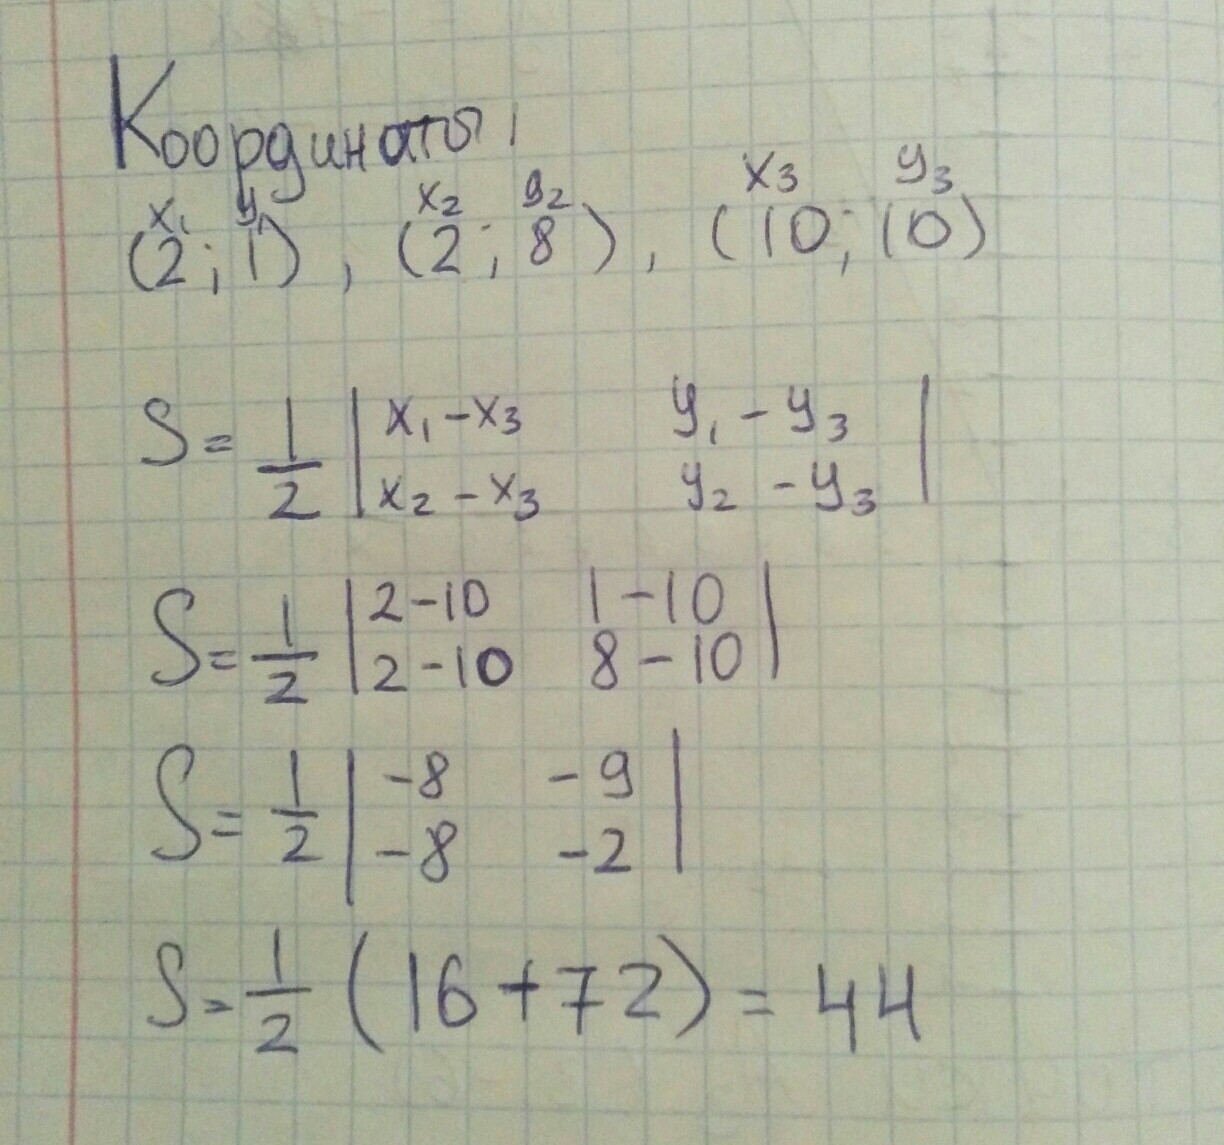 Координаты:
x₁ y₁ x₂ y₂ x₃ y₃
(2; 1), (2; 8), (10; 10)
S = 1/2 | x₁ - x₃ y₁ - y₃ |
| x₂ - x₃ y₂ - y₃ |
S = 1/2 | 2 - 10 1 - 10 |
| 2 - 10 8 - 10 |
S = 1/2 | -8 -9 |
| -8 -2 |
S = 1/2 (16 + 72) = 44